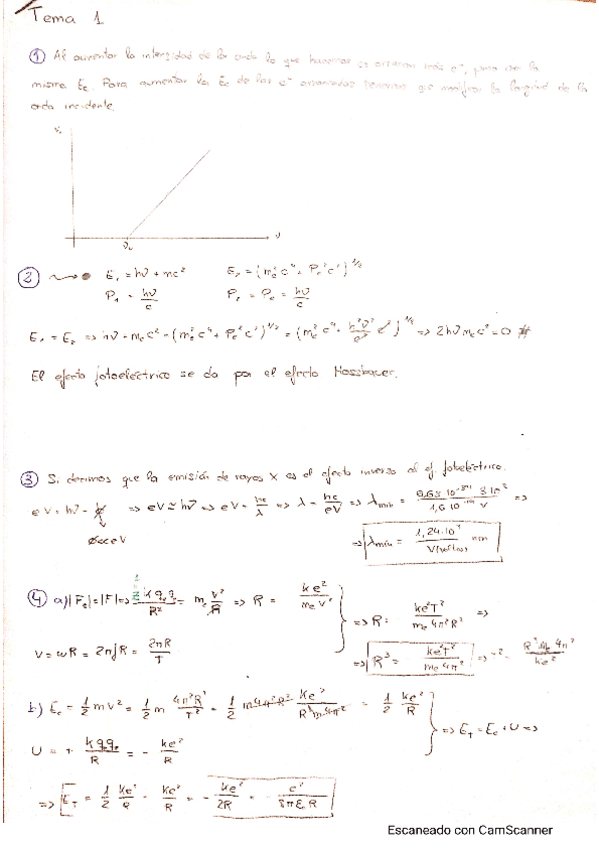 Tema 1
① Al aumentar la intensidad de la onda lo que hacemos es arrancar más e⁻, pero con la
misma Ec. Para aumentar la Ec de los e⁻ arrancados tenemos que modificar la longitud de la
onda incidente.
ν
② E₁ = hν + mc² E₂ = (mₑ²c⁴ + Pₑ²c²)^1/2
P₁ = hν/c P₂ = Pₑ = hν/c
E₁ = E₂ => hν + mₑc² = (mₑ²c⁴ + Pₑ²c²)^1/2 = (mₑ²c⁴ + h²ν²/c² c²)^1/2 => 2hνmₑc² = 0 #
El efecto fotoeléctrico se da por el efecto Mossbauer.
③ Si decimos que la emisión de rayos X es el efecto inverso al ef. fotoeléctrico.
eV = hν - ϕ => eV ≈ hν => eV = hc/λ => λ = hc/eV => λmin = =>
ϕ<<eV => λmin = 1,24·10³/V(voltios) nm
④ a) |Fe| = |F| => = mₑ v²/R => R = ke²/mₑv²
=> R = ke²T²/mₑ4π²R² =>
V = ωR = 2πfR = 2πR/T => R³ = ke²T²/mₑ4π² => T² = R³mₑ4π²/ke²
b) Ec = 1/2 mv² = 1/2 m 4π²R²/T² = 1/2 m4π²R² ke²/R³m4π² = 1/2 ke²/R
=> E_T = Ec + U =>
U = + kqqₑ/R = - ke²/R
=> E_T = 1/2 ke²/R - ke²/R = - ke²/2R = - e²/8πε₀R
Escaneado con CamScanner